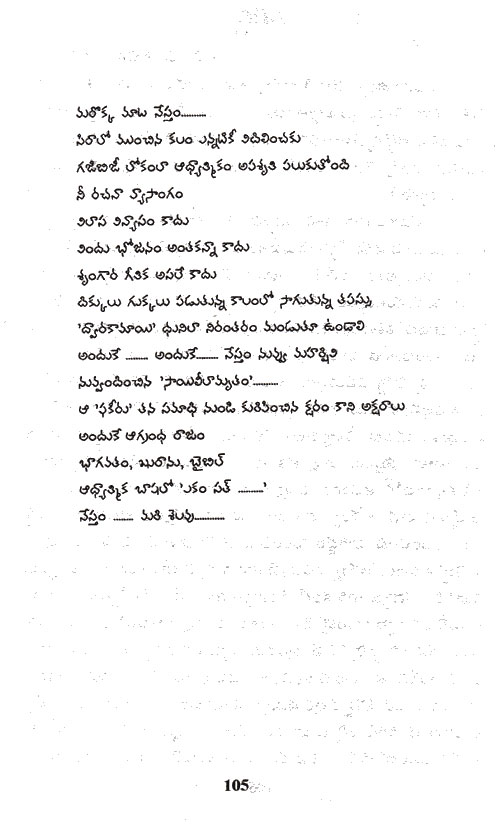 మరొక్క మాట నేస్తం..........
సిరాలో ముంచిన కలం ఎన్నటికీ విదిలించకు
గజిబిజీ లోకంలా ఆధ్యాత్మికం అపశృతి పలుకుతోంది
నీ రచనా వ్యాసాంగం
విలాస విన్యాసం కాదు
విందు భోజనం అంతకన్నా కాదు
శృంగార గీతిక అసలే కాదు
దిక్కులు గుక్కలు పడుతున్న కాలంలో సాగుతున్న తపస్సు
'ద్వారకామాయి' ధునిలా నిరంతరం మండుతూ ఉండాలి
అందుకే ........ అందుకే........ నేస్తం నువ్వు మహర్షివి
నువ్వందించిన 'సాయిలీలామృతం'..........
ఆ 'ఫకీరు' తన సమాధి నుండి కురిపించిన క్షరం కాని అక్షరాలు
అందుకే ఆగ్రంధ రాజం
భాగవతం, ఖురాను, బైబిల్
ఆధ్యాత్మిక బాషలో 'ఏకం సత్ .........'
నేస్తం ....... మరి శెలవు............
105